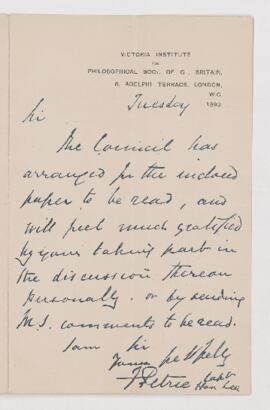 VICTORIA INSTITUTE
OR
PHILOSOPHICAL SOCY. OF G. BRITAIN,
8, ADELPHI TERRACE, LONDON,
W.C.
Tuesday 1893
Sir
The Council has
arranged for the inclosed
paper to be read, and
will feel much gratified
by your taking part in
the discussion thereon
personally. or by sending
M.S. comments to be read.
I am Sir
Yours
F Petrie Capt
Hon Sec